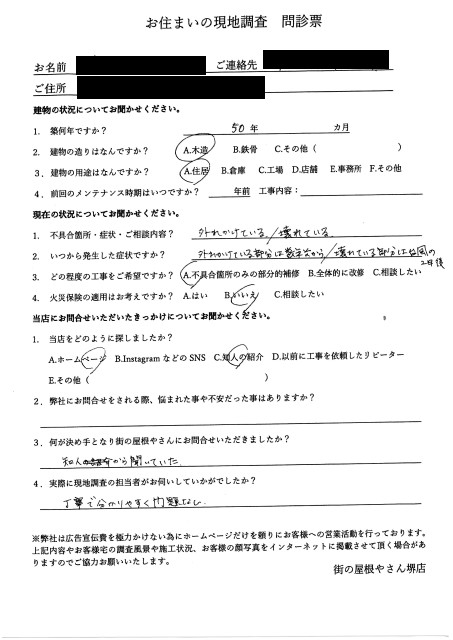 お住まいの現地調査　問診票
お名前　ご連絡先
ご住所
建物の状況についてお聞かせください。
1.　築何年ですか？　50 年　カ月
2.　建物の造りはなんですか？　A.木造　B.鉄骨　C.その他（　）
3.　建物の用途はなんですか？　A.住居　B.倉庫　C.工場　D.店舗　E.事務所　F.その他
4.　前回のメンテナンス時期はいつですか？　年前　工事内容：
現在の状況についてお聞かせください。
1.　不具合箇所・症状・ご相談内容？　外れかけている／壊れている。
2.　いつから発生した症状ですか？　外れかけている部分は数年前から／壊れている部分は台風の
2年後
3.　どの程度の工事をご希望ですか？　A.不具合箇所のみの部分的補修　B.全体的に改修　C.相談したい
4.　火災保険の適用はお考えですか？　A.はい　B.いいえ　C.相談したい
当店にお問合せいただいたきっかけについてお聞かせください。
1.　当店をどのように探しましたか？
A.ホームページ　B.InstagramなどのSNS　C.知人の紹介　D.以前に工事を依頼したリピーター
E.その他（　）
2．弊社にお問合せをされる際、悩まれた事や不安だった事はありますか？
3．何が決め手となり街の屋根やさんにお問合せいただきましたか？
知人から聞いていた
4．実際に現地調査の担当者がお伺いしていかがでしたか？
丁寧で分かりやすく問題なし
※弊社は広告宣伝費を極力かけない為にホームページだけを頼りにお客様への営業活動を行っております。
上記内容やお客様宅の調査風景や施工状況、お客様の顔写真をインターネットに掲載させて頂く場合があ
りますのでご協力お願いいたします。
街の屋根やさん堺店